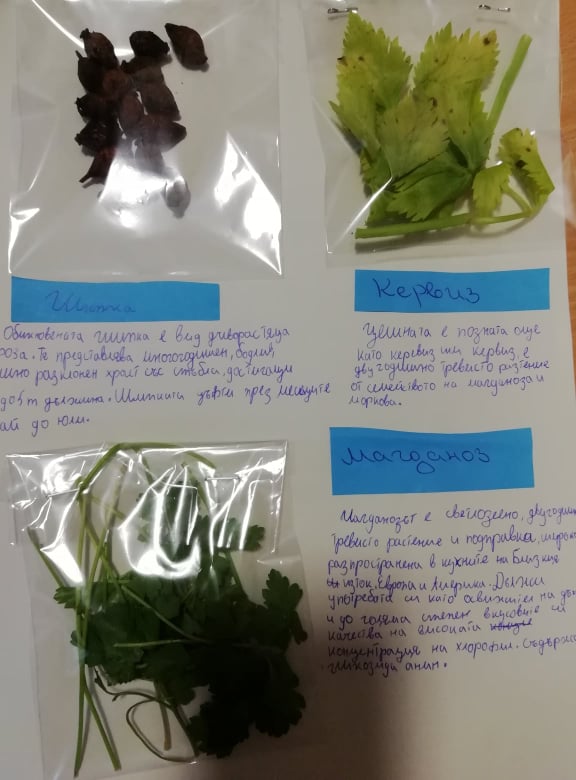 Шипка
Обикновената шипка е вид диворастяща
роза. Тя представлява многогодишен, бодлив,
разклонен храст със стебла, достигащи
до 5 m дължина. Шипката цъфти през месеците
май до юли.
Кервиз
Целината е позната още
като керевиз или кервиз, е
двугодишно тревисто растение
от семейството на магданоза и
моркова.
Магданоз
Магданозът е светлозелено, двугодишно
тревисто растение и подправка, широко
разпространена в кухните на Близкия
изток, Европа и Америка. Дължи
употребата си като освежител на дъх
и до голяма степен вкусовите си
качества на високата
концентрация на хлорофил. Съдържа
гликозида апиин.